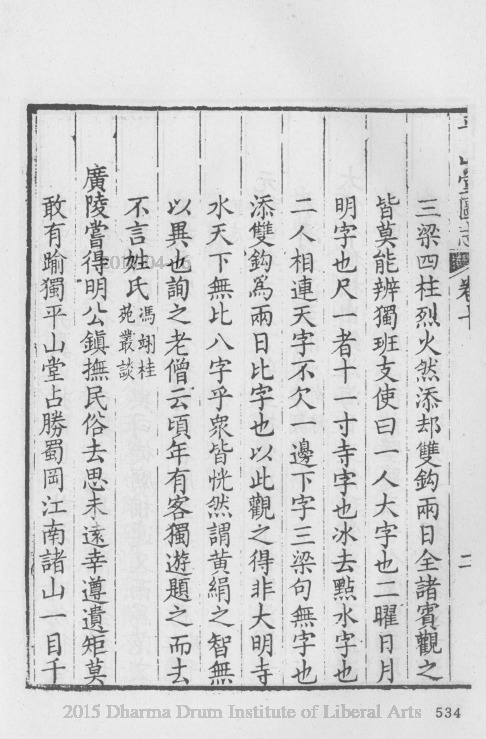 平山堂圖志 卷十
二
三梁四柱烈火然添却雙鈎兩日全諸賓觀之
皆莫能辨獨班支使曰一人大字也二曜日月
明字也尺一者十一寸寺字也冰去點水字也
二人相連天字不欠一邊下字三梁句無字也
添雙鈎爲兩日比字也以此觀之得非大明寺
水天下無比八字乎衆皆恍然謂黄絹之智無
以異也詢之老僧云頃年有客獨遊題之而去
不言姓氏
馮翊桂
苑叢談
廣陵嘗得明公鎮撫民俗去思未遠幸遵遺矩莫
敢有踰獨平山堂占勝蜀岡江南諸山一目千
2015 Dharma Drum Institute of Liberal Arts 534